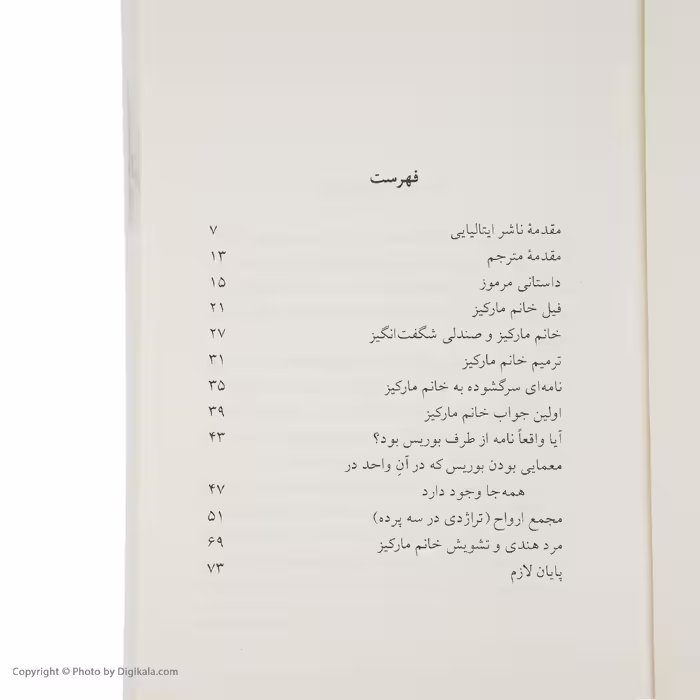 فهرست
مقدمهٔ ناشر ایتالیایی ۷
مقدمهٔ مترجم ۱۳
داستانی مرموز ۱۵
فیل خانم مارکیز ۲۱
خانم مارکیز و صندلی شگفت‌انگیز ۲۷
ترمیم خانم مارکیز ۳۱
نامه‌ای سرگشوده به خانم مارکیز ۳۵
اولین جواب خانم مارکیز ۳۹
آیا واقعاً نامه از طرف بوریس بود؟ ۴۳
معمایی بودن بوریس که در آنِ واحد در
همه‌جا وجود دارد ۴۷
مجمع ارواح (تراژدی در سه پرده) ۵۱
مرد هندی و تشویش خانم مارکیز ۶۹
پایان لازم ۷۳
Copyright © Photo by Digikala.com